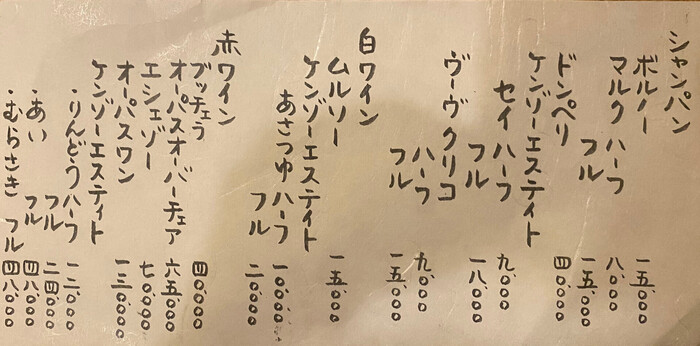 シャンパン
ボルノー 一五.〇〇〇
マルク ハーフ 八.〇〇〇
フル 一五.〇〇〇
ドンペリ 四〇.〇〇〇
ケンゾーエステイト
セイ ハーフ 九.〇〇〇
フル 一八.〇〇〇
ヴーヴクリコ
ハーフ 九.〇〇〇
フル 一五.〇〇〇
白ワイン
ムルソー 一五.〇〇〇
ケンゾーエステイト
あさつゆ ハーフ 一〇.〇〇〇
フル 二〇.〇〇〇
赤ワイン
ブッチェラ 四〇.〇〇〇
オーパスオーバーチェア 六五.〇〇〇
エシェゾー 七〇.〇〇〇
オーパスワン 一三〇.〇〇〇
ケンゾーエステイト
・りんどう ハーフ 一二.〇〇〇
フル 二四.〇〇〇
・あい フル 四八.〇〇〇
・むらさき フル 四八.〇〇〇